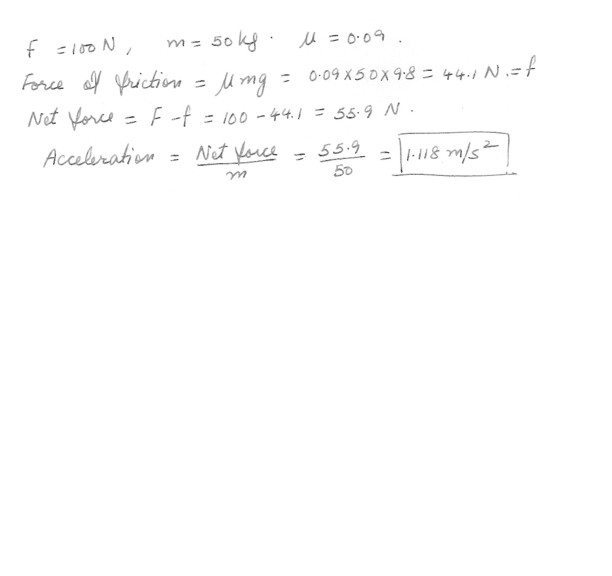 F = 100 N, m = 50 kg. μ = 0.09.
Force of friction = μmg = 0.09 x 50 x 9.8 = 44.1 N. = f
Net force = F - f = 100 - 44.1 = 55.9 N.
Acceleration = Net force / m = 55.9 / 50 = 1.118 m/s²